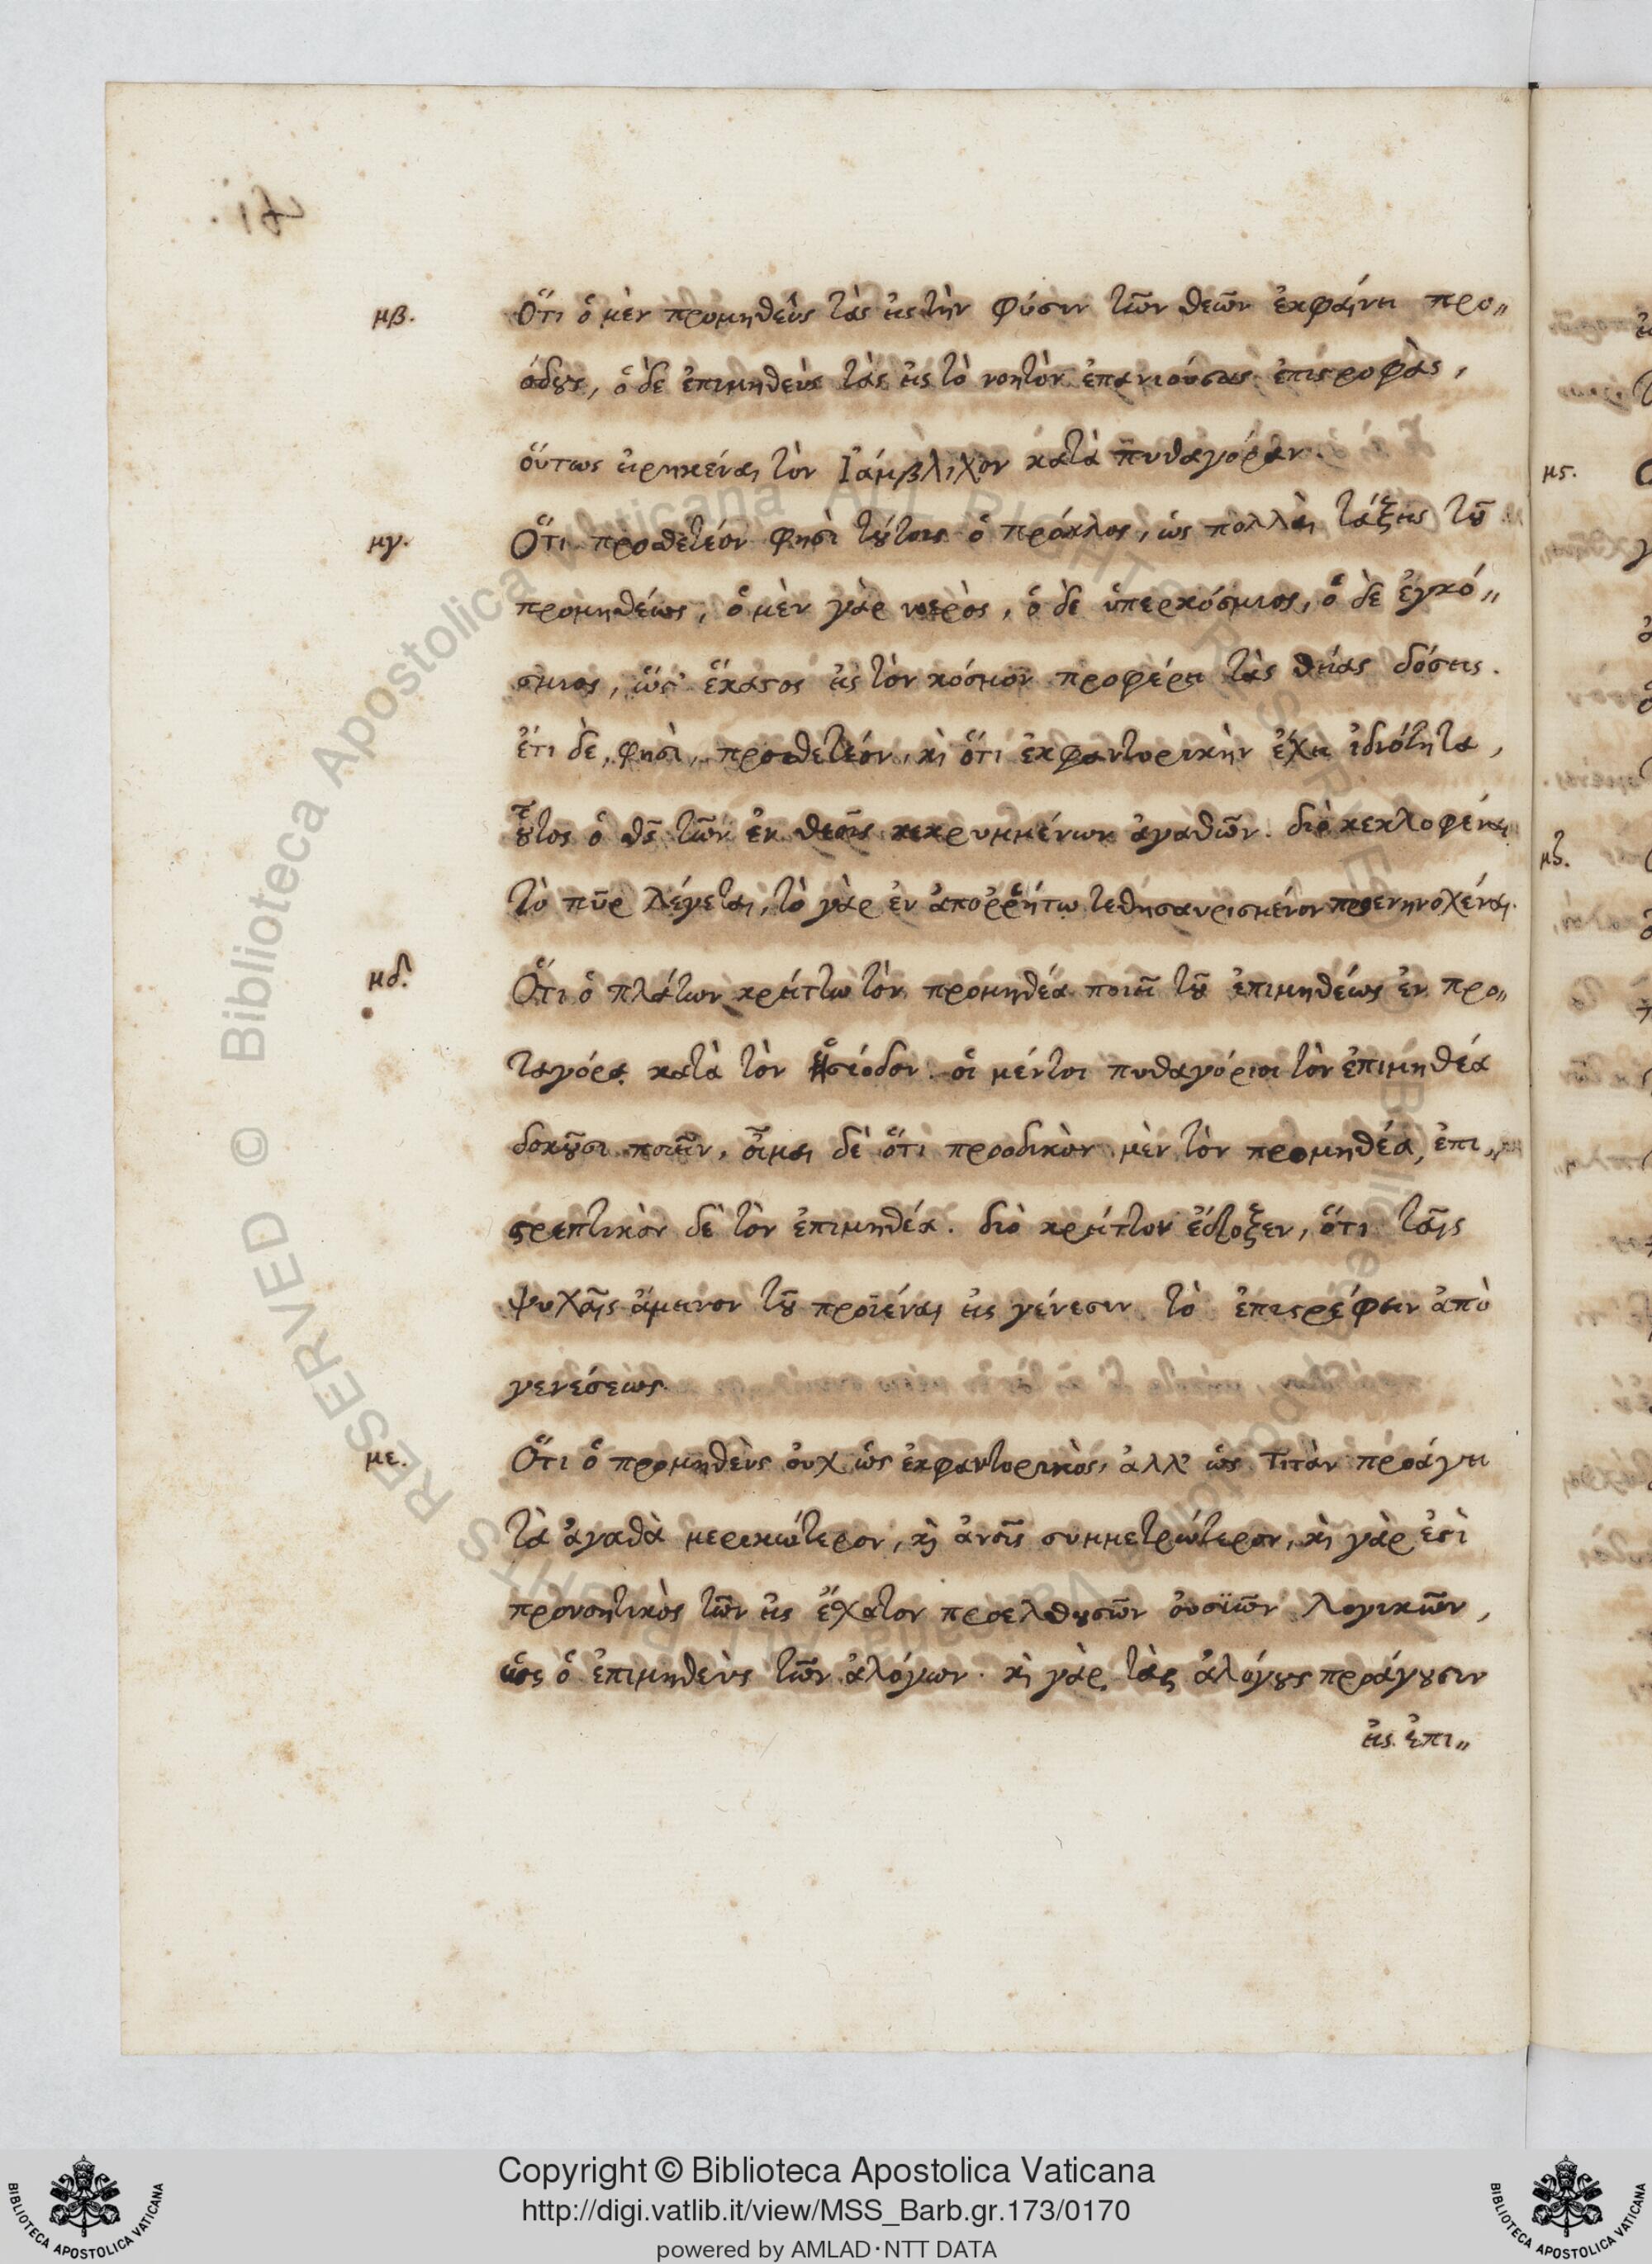 μβ. Ὅτι ὁ μὲν προμηθεὺς τὰς εἰς τὴν φύσιν τῶν θεῶν ἐκφαίνει προ„
όδους, ὁ δὲ ἐπιμηθεὺς τὰς εἰς τὸ νοητὸν ἐπανιούσας ἐπιστροφὰς,
οὕτως εἰρηκέναι τὸν Ἰάμβλιχον κατὰ πυθαγόραν.
μγ. Ὅτι προσθετέον φησὶ τούτοις ὁ πρόκλος, ὡς πολλαὶ τάξεις τοῦ
προμηθέως, ὁ μὲν γὰρ νοερὸς, ὁ δὲ ὑπερκόσμιος, ὁ δὲ ἐγκό„
σμιος, ὡς ἕκαστος εἰς τὸν κόσμον προφέρει τὰς θείας δόσεις.
ἔτι δὲ, φησὶ, προσθετέον, καὶ ὅτι ἐκφαντορικὴν ἔχει ἰδιότητα,
οὗτος ὁ θς τῶν ἐν θεοῖς κεκρυμμένων ἀγαθῶν. διὸ κεκλοφέναι
τὸ πῦρ λέγεται, τὸ γὰρ ἐν ἀποῤῥήτῳ τεθησαυρισμένον προενηνοχέναι.
μδ. Ὅτι ὁ πλάτων κρείττω τὸν προμηθέα ποιεῖ τοῦ ἐπιμηθέως ἐν προ„
ταγόρᾳ κατὰ τὸν ἡσίοδον. οἱ μέντοι πυθαγόριοι τὸν ἐπιμηθέα
δοκοῦσι ποιεῖν, οἶμαι δὲ ὅτι προοδικὸν μὲν τὸν προμηθέα, ἐπι„
στρεπτικὸν δὲ τὸν ἐπιμηθέα. διὸ κρείττον ἔδοξεν, ὅτι ταῖς
ψυχαῖς ἄμεινον τοῦ προϊέναι εἰς γένεσιν τὸ ἐπιστρέφειν ἀπὸ
γενέσεως.
με. Ὅτι ὁ προμηθεὺς οὐχ ὡς ἐκφαντορικὸς, ἀλλ' ὡς Τιτὰν προάγει
τὰ ἀγαθὰ μερικώτερον, καὶ ἀνοῖς συμμετρώτερον, καὶ γὰρ ἐστὶ
προνοητικὸς τῶν εἰς ἔχατον προελθουσῶν οὐσιῶν λογικῶν,
ὡς ὁ ἐπιμηθεὺς τῶν ἀλόγων. καὶ γὰρ τὰς ἀλόγους προάγουσιν
εἰς ἐπι„
© Biblioteca Apostolica Vaticana ALL RIGHTS RESERVED
Copyright © Biblioteca Apostolica Vaticana
http://digi.vatlib.it/view/MSS_Barb.gr.173/0170
powered by AMLAD·NTT DATA
BIBLIOTECA APOSTOLICA VATICANA
BIBLIOTECA APOSTOLICA VATICANA